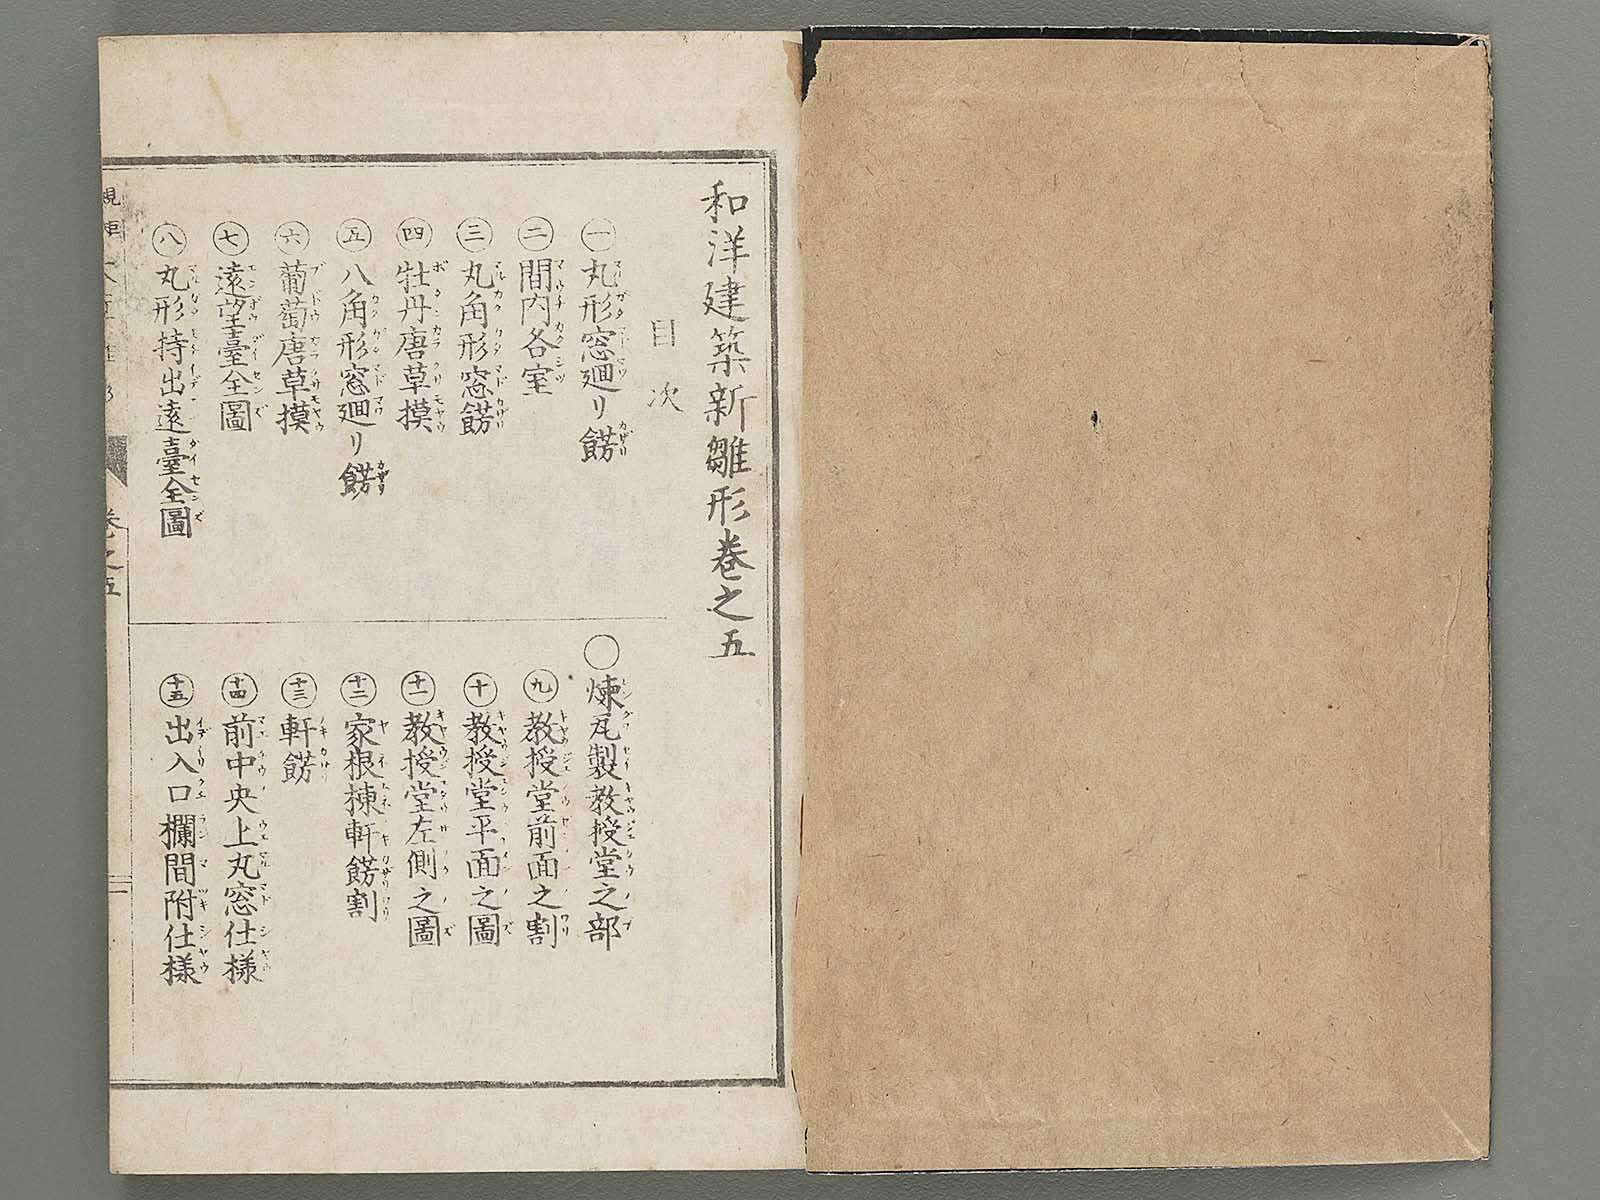 和洋建築新雛形巻之五
目次
一 丸形窓廻リ餝
二 間内各室
三 丸角形窓餝
四 牡丹唐草摸
五 八角形窓廻リ餝
六 葡萄唐草摸
七 遠望臺全圖
八 丸形持出遠臺全圖
〇 煉瓦製教授堂之部
九 教授堂前面之割
十 教授堂平面之圖
十一 教授堂左側之圖
十二 家根棟軒餝割
十三 軒餝
十四 前中央上丸窓仕様
十五 出入口欄間附仕様
巻之五